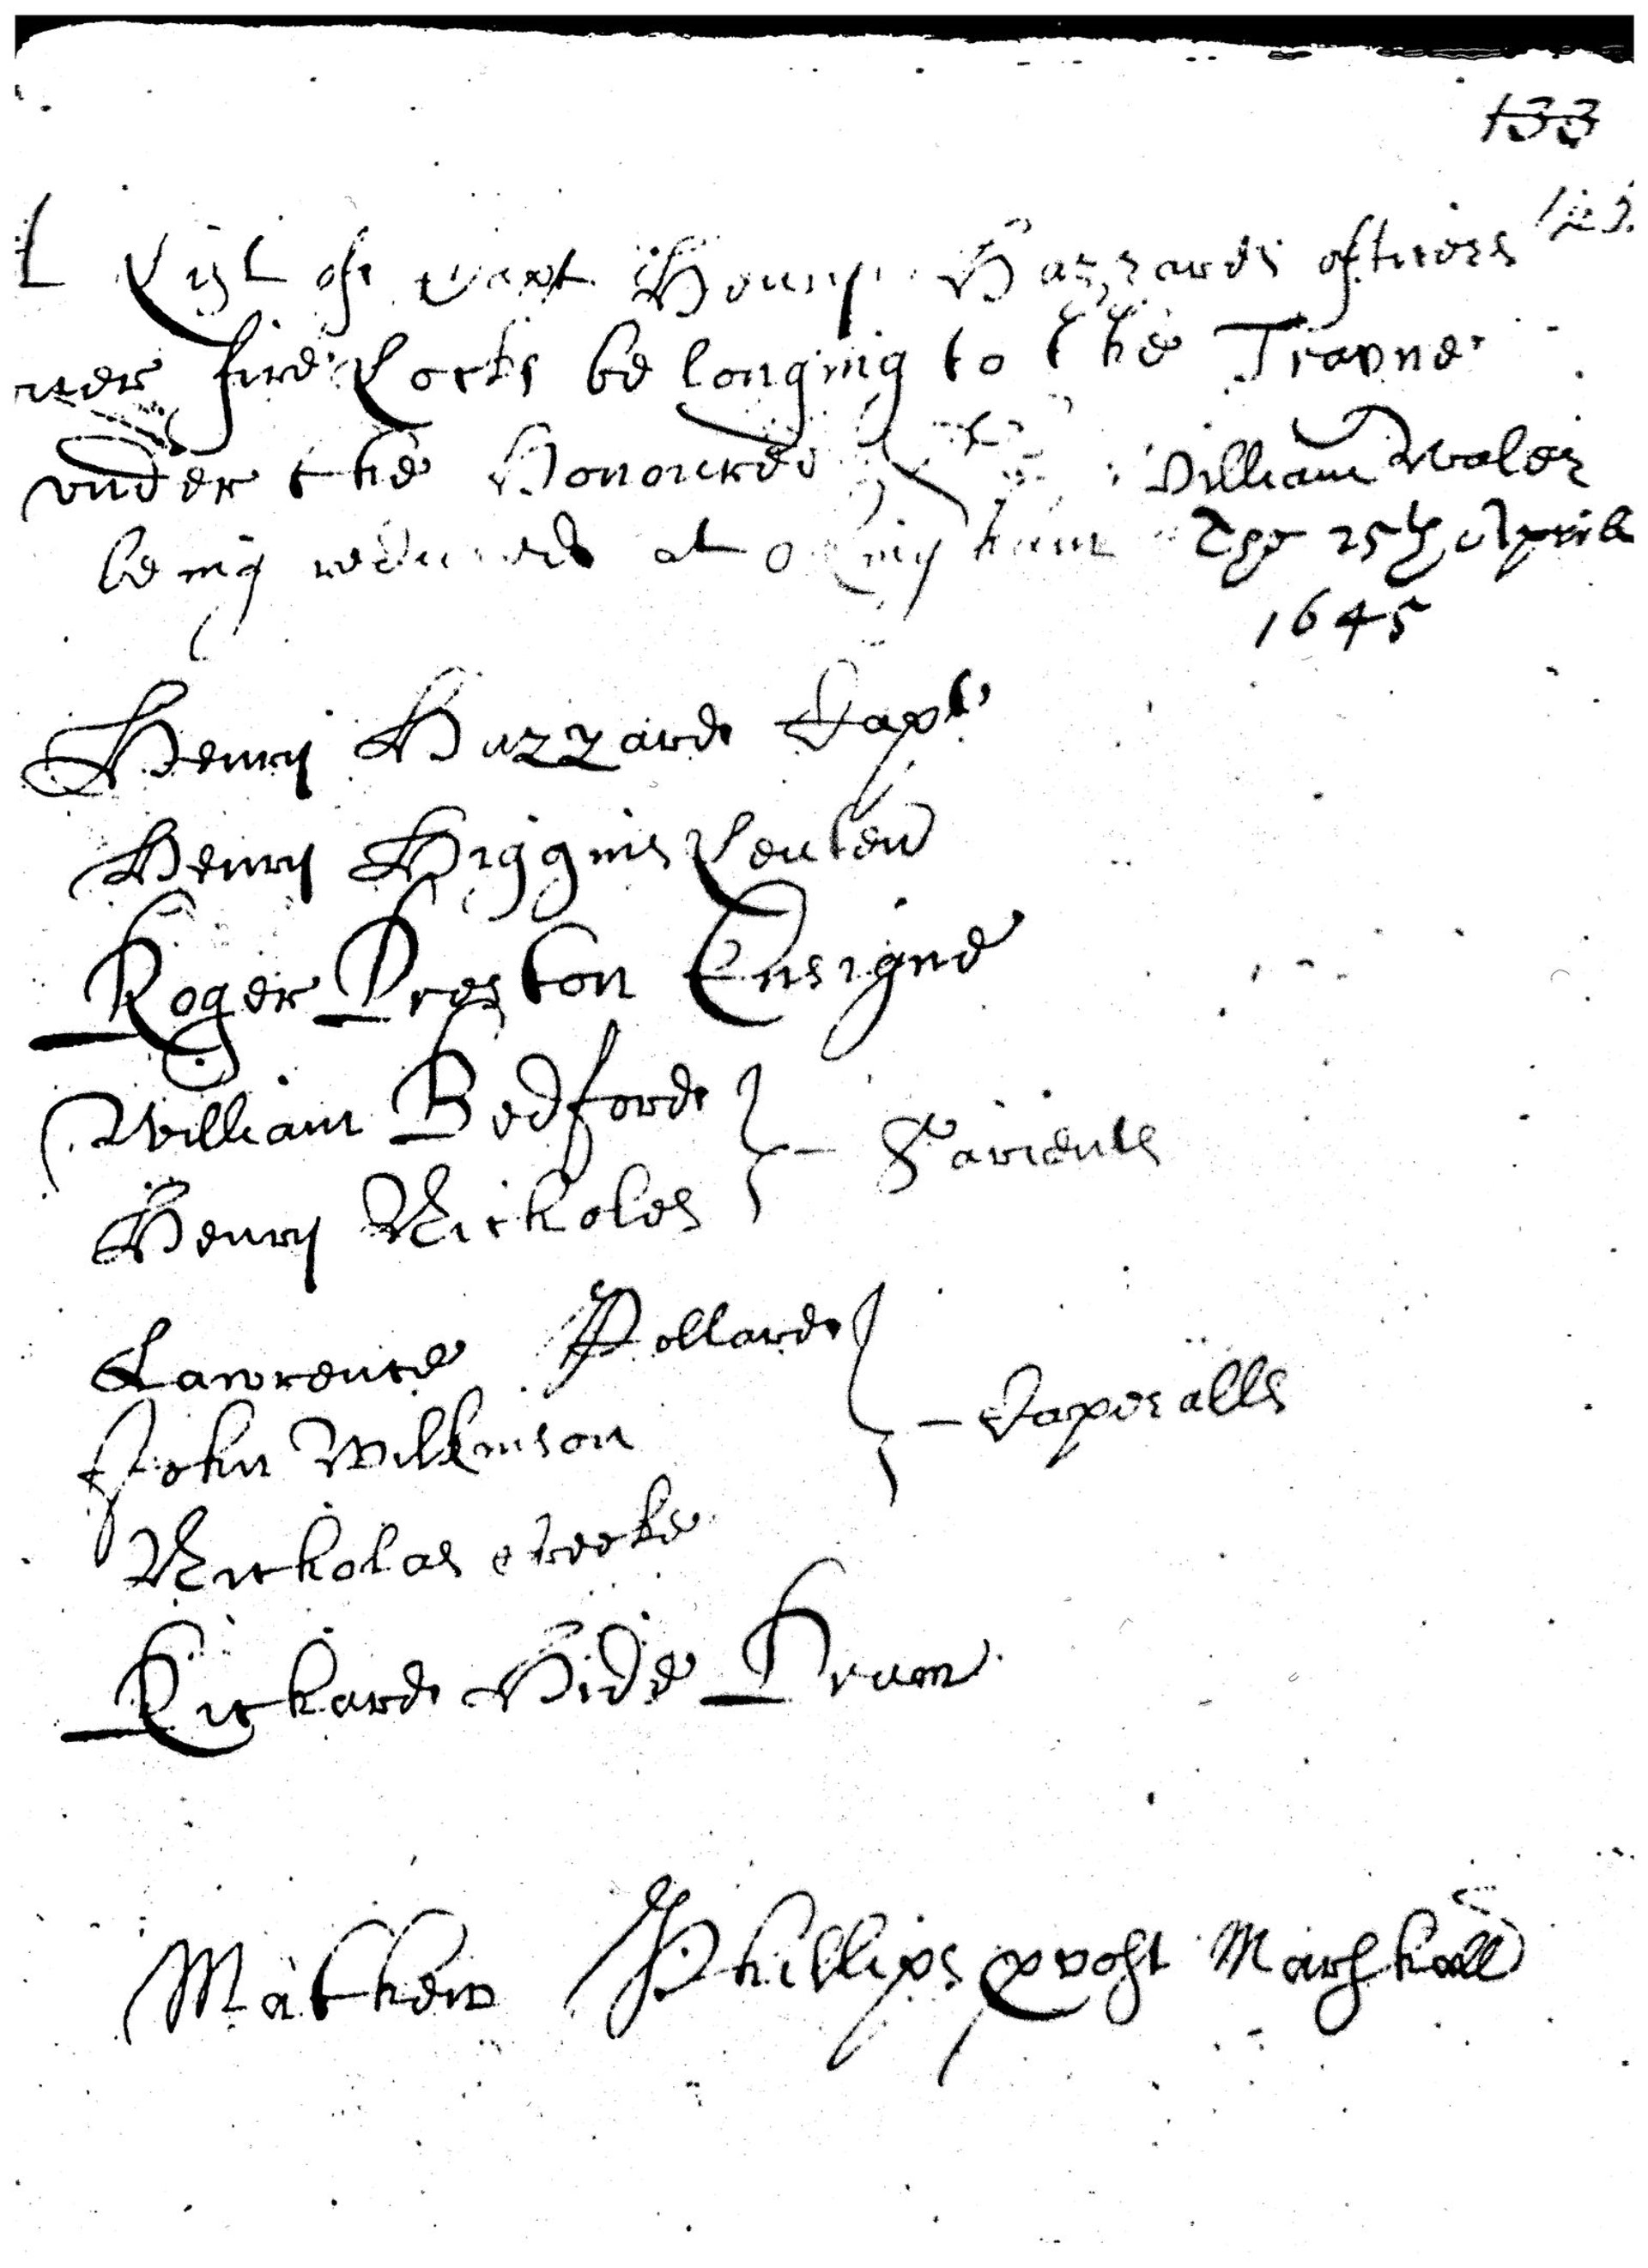 133
123.
List of Capt Henry Hazzards officers
over fire Locks be longing to the Trayne
vnder the Honoured William Waler
being reduced at the 25th Aprill
1645
Henry Hazzard Capt
Henry Higgins Leuten
Roger Preston Ensigne
William Bedford
Sarients
Henry Nicholes
Lawrence Pollard
Caperalls
John Wilkinson
Nicholas
Richard Hide Drum
Mathew Phillips provst Marshall